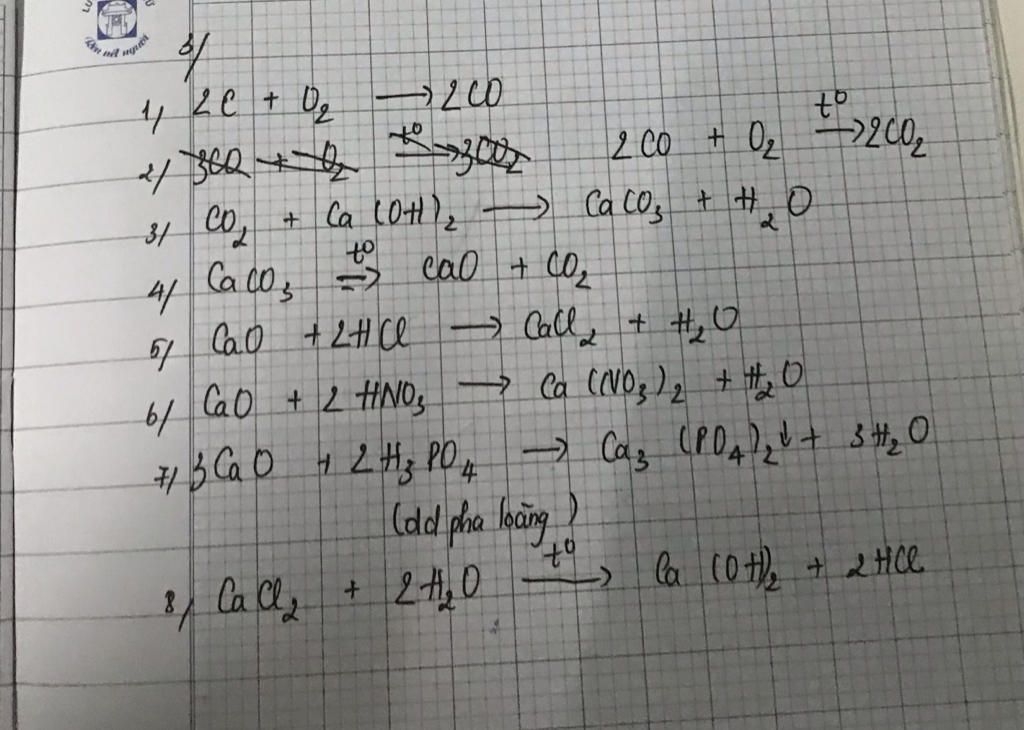 3/
1) 2C + O₂ ⟶ 2CO
2) 3CO + O₂ t⁰⟶ 3CO₂ 2CO + O₂ t⁰⟶ 2CO₂
3) CO₂ + Ca(OH)₂ ⟶ CaCO₃ + H₂O
4) CaCO₃ t⁰⟶ CaO + CO₂
5) CaO + 2HCl ⟶ CaCl₂ + H₂O
6) CaO + 2HNO₃ ⟶ Ca(NO₃)₂ + H₂O
7) 3CaO + 2H₃PO₄ ⟶ Ca₃(PO₄)₂↓ + 3H₂O
(dd pha loãng)
8) CaCl₂ + 2H₂O t⁰⟶ Ca(OH)₂ + 2HCl